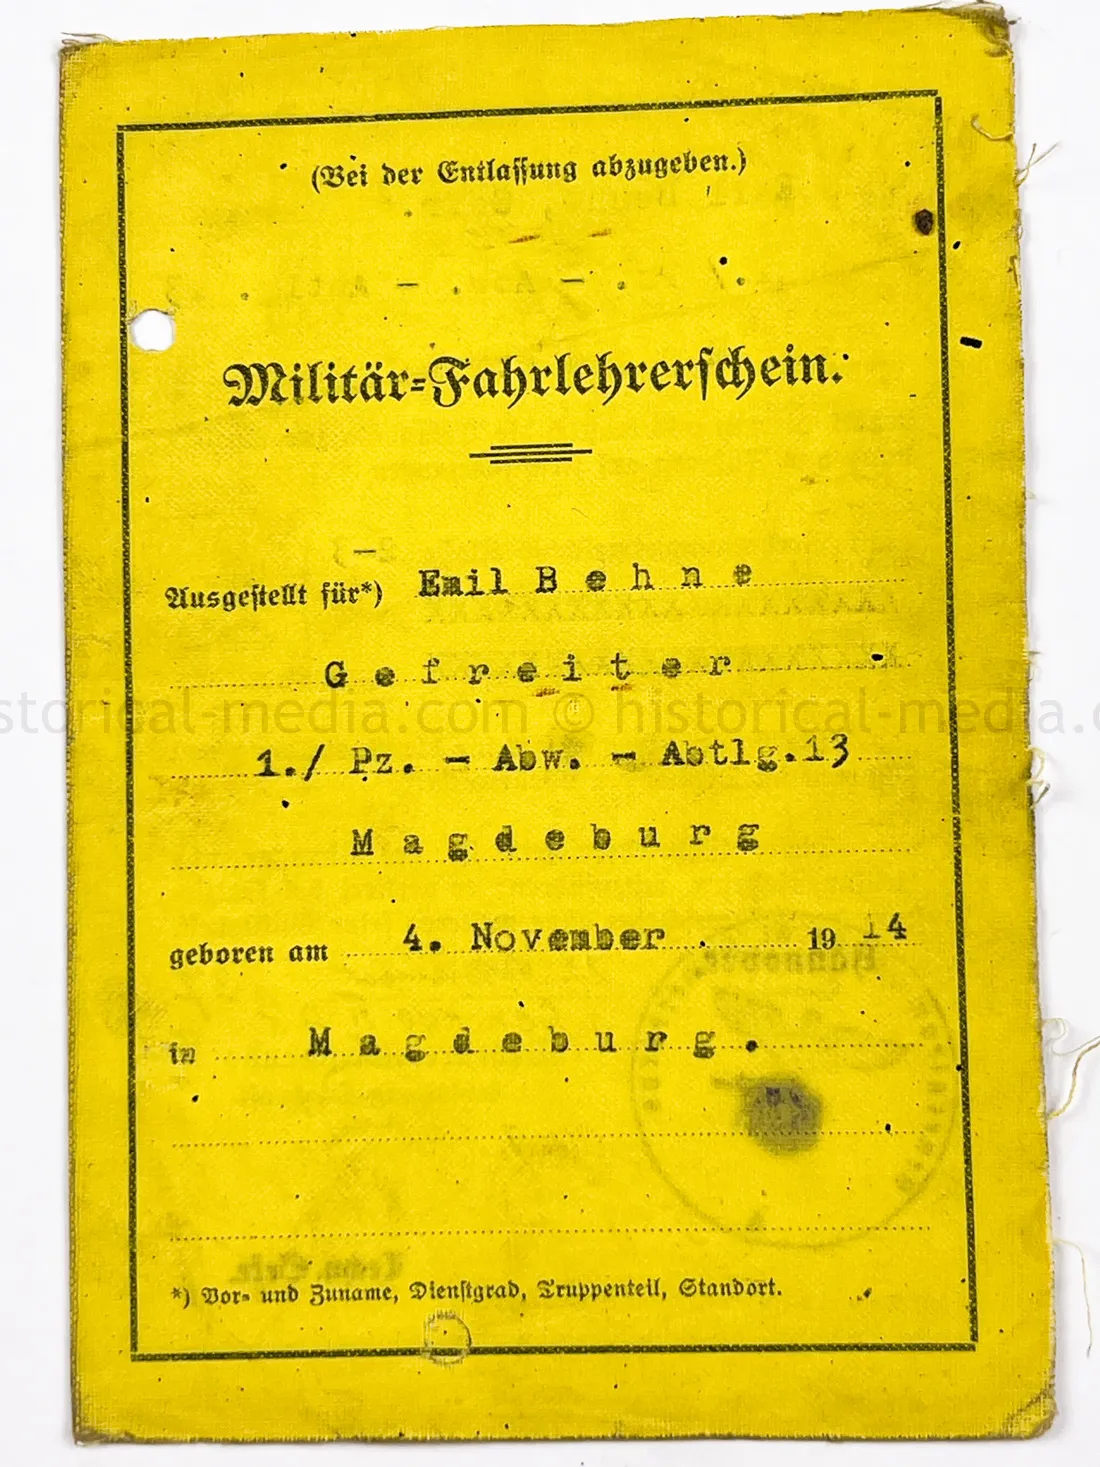 (Bei der Entlassung abzugeben.)
Militär=Fahrlehrerschein.
Ausgestellt für*) Emil Behne
Gefreiter
1./ Pz. - Abw. - Abtlg.13
Magdeburg
geboren am 4. November. 1914
in Magdeburg.
*) Vor= und Zuname, Dienstgrad, Truppenteil, Standort.
historical-media.com © historical-media.com